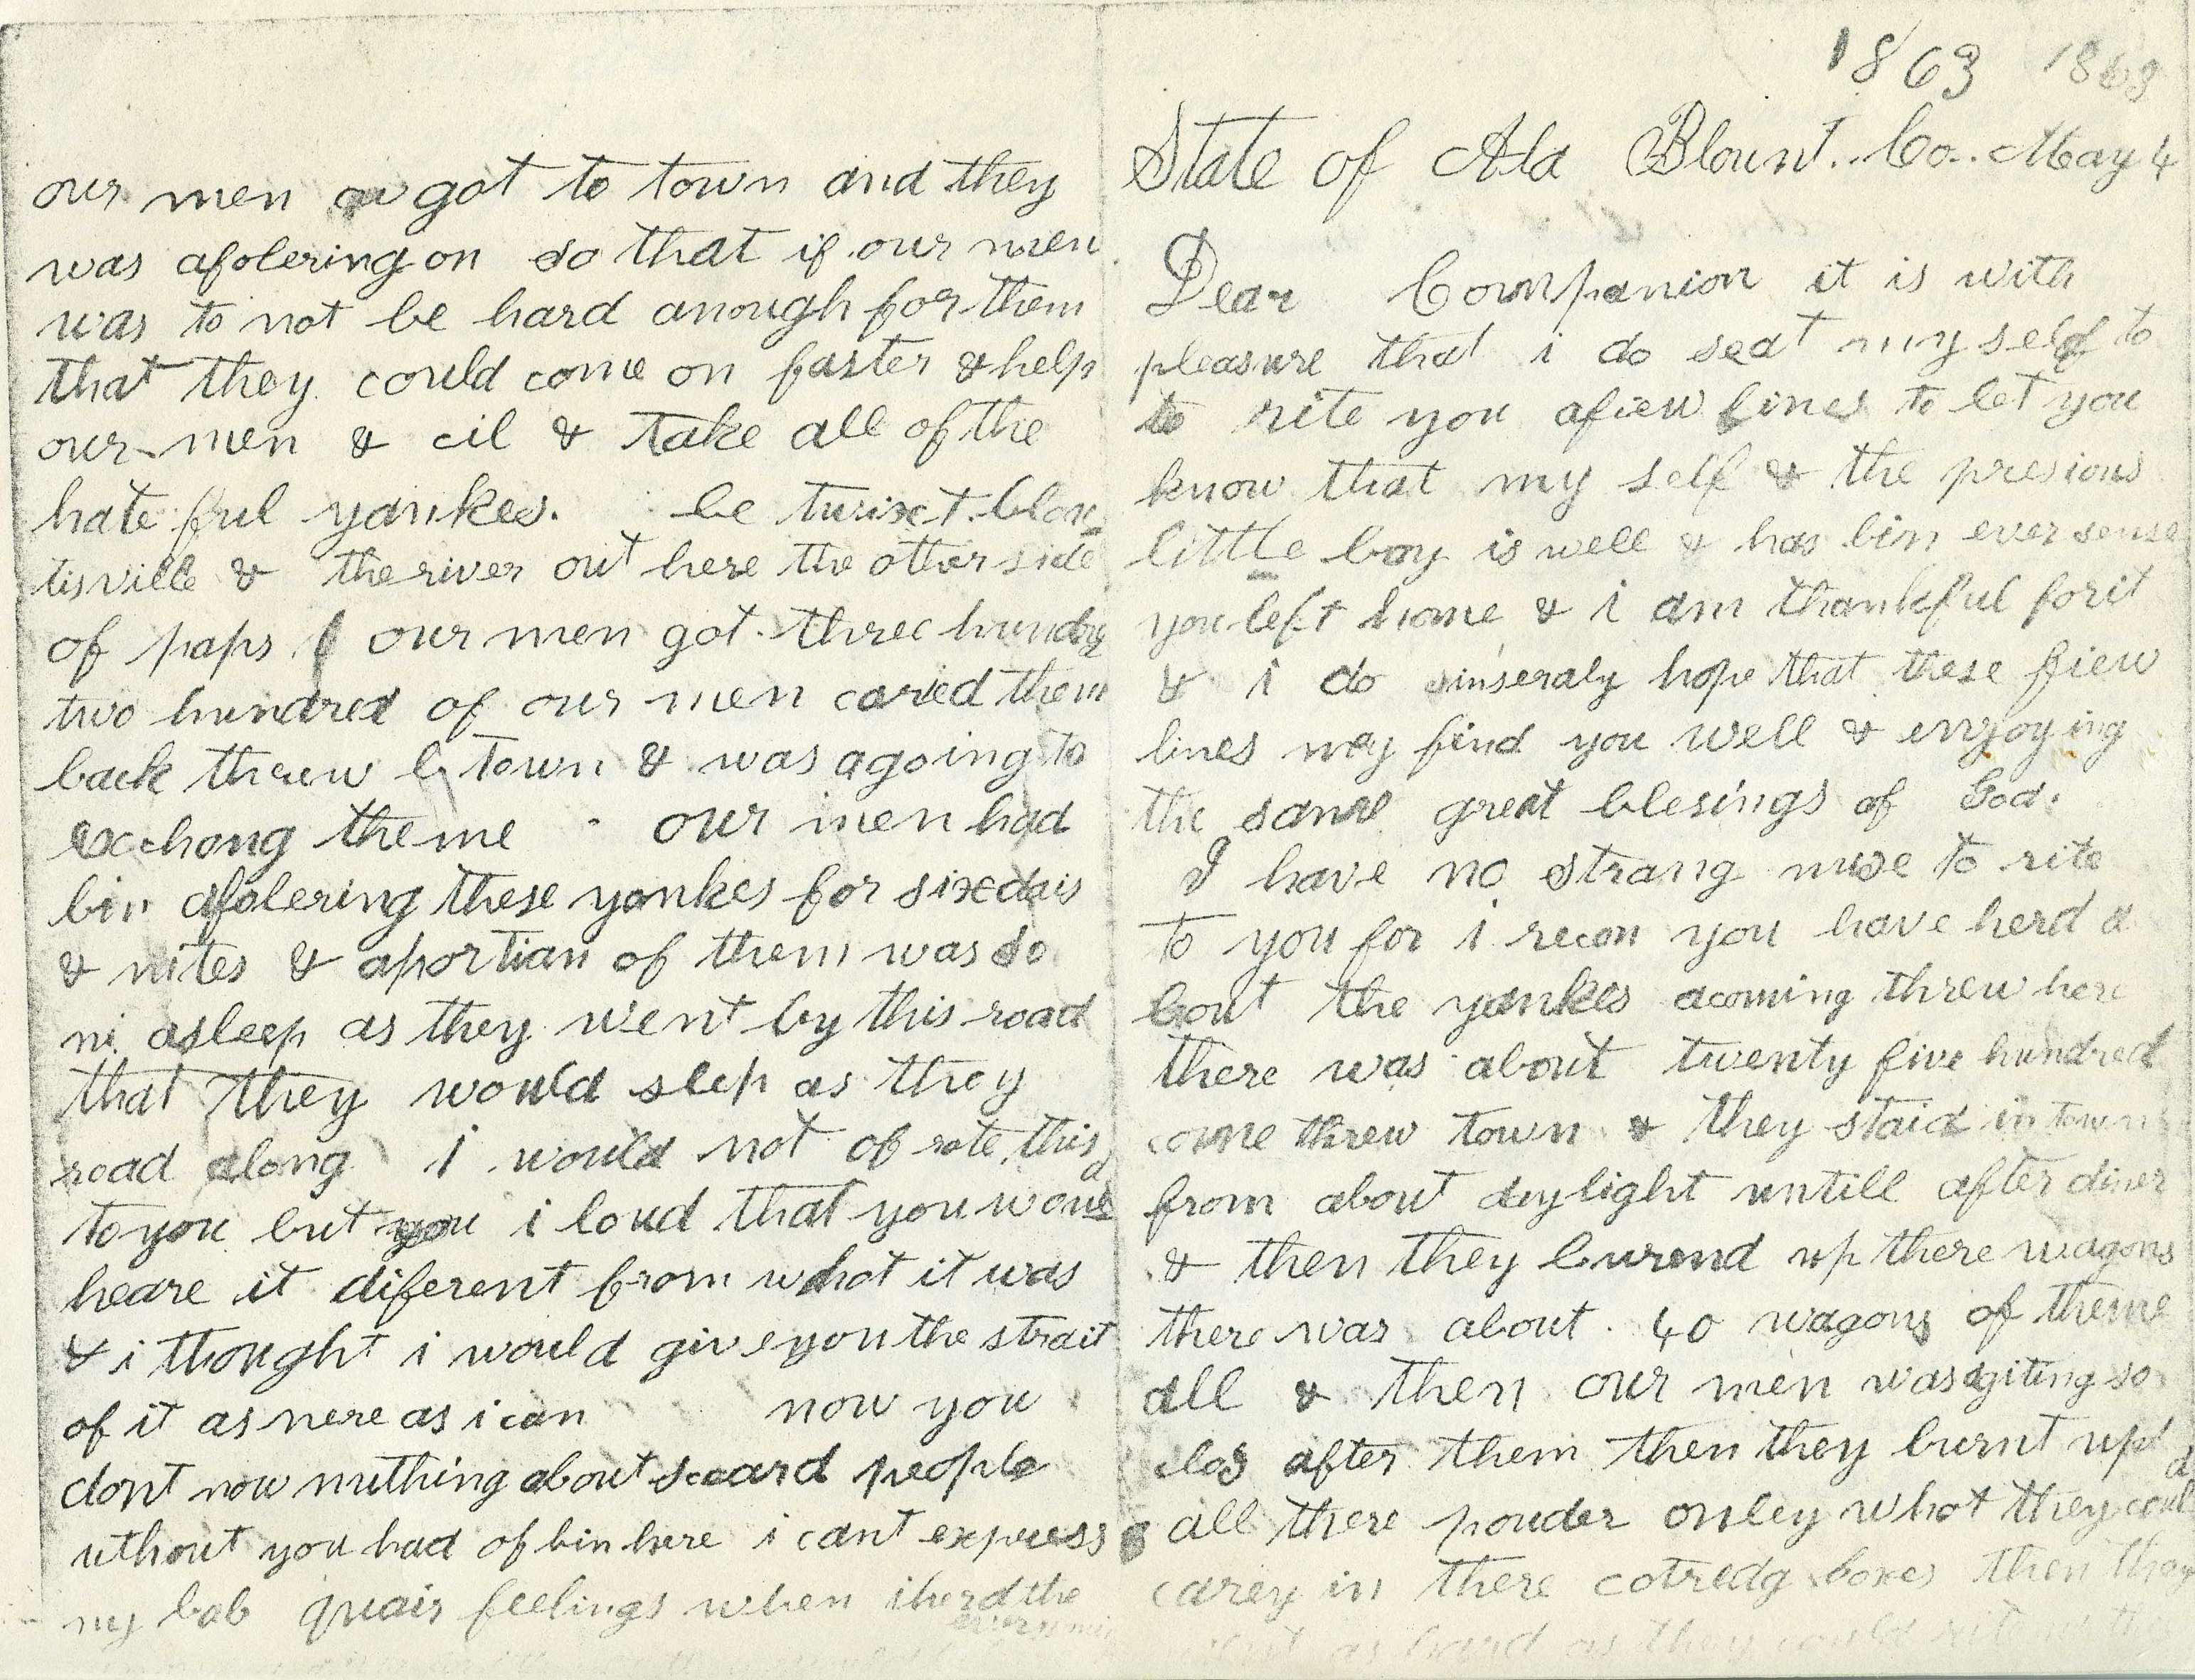 1863 1863
State of Ala Blount. Co. May 4
Dear Companion it is with
pleasure that i do seat my self to
to rite you afiew lines to let you
know that my self & the presious
little boy is well & has bin ever sense
you left home & i am thankful forit
& i do sinseraly hope that these fiew
lines may find you well & enjoying
the same great blesings of God.
I have no strang nuse to rite
to you for i recon you have herd a
bout the yankes acoming threw here
there was about twenty five hundred
come threw town & they staid in town
from about daylight untill after diner
& then they burend up there wagons
there was about 40 wagons of theme
all & then our men was agiting so
clos after them then they burnt up
all there pouder onley what they could
carey in there cotredg boxes then they
as hard as they could
our men got to town and they
was afolering on so that if our men
was to not be hard anough for them
that they could come on faster & help
our men & cil & take all of the
hate ful yankes. be twixt blon
tisville & the river out here the other side
of paps our men got three hundred
two hundred of our men caried them
back threw b town & was agoing to
exchang theme our men had
bin afolering these yonkes for sixdais
& nites & aportian of them was so
ni asleep as they went by this road
that they would slep as they
road along i would not of rote this
to you but you i loud that you would
heare it diferent from what it was
& i thought i would give you the strait
of it as nere as i can now you
dont now nuthing about scard people
uthout you had of bin here i cant express
my quair feelings when i herd the